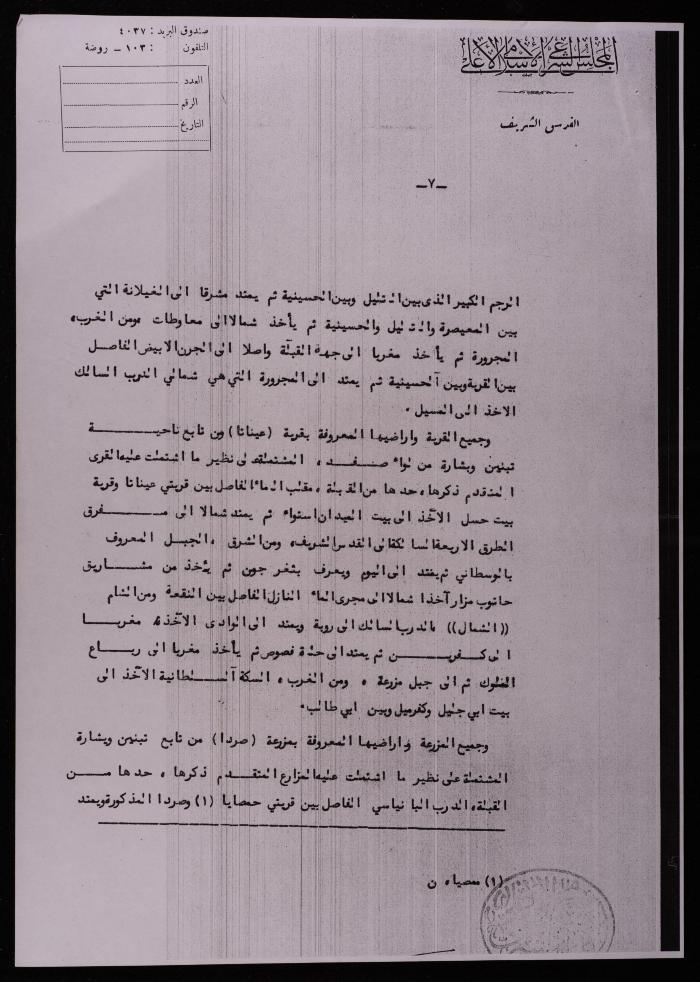 صندوق البريد : ٤٠٣٧
التلفون : ١٠٣ – روضة
العدد
الرقم
التاريخ
المجلس الشرعي الاسلامي الاعلى
القدس الشريف
–٧–
الرجم الكبير الذى بين التليل وبين الحسينية ثم يمتد مشرقا الى الغيلانة التي
بين المعيصرة والتليل والحسينية ثم يأخذ شمالا الى معاوطات ومن الغرب،
المجرورة ثم يأخذ مغربا الى جهة القبلة واصلا الى الجرن الابيض الفاصل
بين القرية وبين الحسينية ثم يمتد الى المجرورة التي هي شمالي الدرب السالك
الاخذ الى المسيل .
وجميع القرية واراضيها المعروفة بقرية (عيناتا) من تابع ناحيـــــة
تبنين وبشارة من لواء صفـــد ، المشتملة على نظير ما اشتملت عليه القرى
المتقدم ذكرها، حدها من القبلة ، مقلب الماء الفاصل بين قريتي عيناتا وقرية
بيت حسل الآخذ الى بيت الميدان استواء ثم يمتد شمالا الى مـــفرق
الطرق الاربعة السالكة الى القدس الشريف، ومن الشرق ، الجبل المعروف
بالوسطاني ثم يمتد الى اليوم ويعرف بشغر جون ثم يأخذ من مشــاريق
حانوب مزار آخذا شمالا الى مجرى الماء النازل الفاصل بين النقعة ومن الشام
((الشمال)) الدرب السالك الى روية ويمتد الى الوادى الآخذ مغربـــا
الى كفـــن ثم يمتد الى فصوص ثم يأخذ مغربا الى ربـــاع
ثم الى جبل مزرعة ، ومن الغرب ، السكة السلطانية الآخذ الى
بيت ابي جليل وكفرميل وبين ابي طالب.
وجميع المزرعة واراضيها المعروفة بمزرعة (صردا) من تابع تبنين وبشارة
المشتملة على نظير ما اشتملت عليه المزارع المتقدم ذكرها ، حدها مـــن
القبلة، الدرب البانياسي الفاصل بين قريتي حمصايا (١) وصردا المذكورة ويمتد
(١) ن